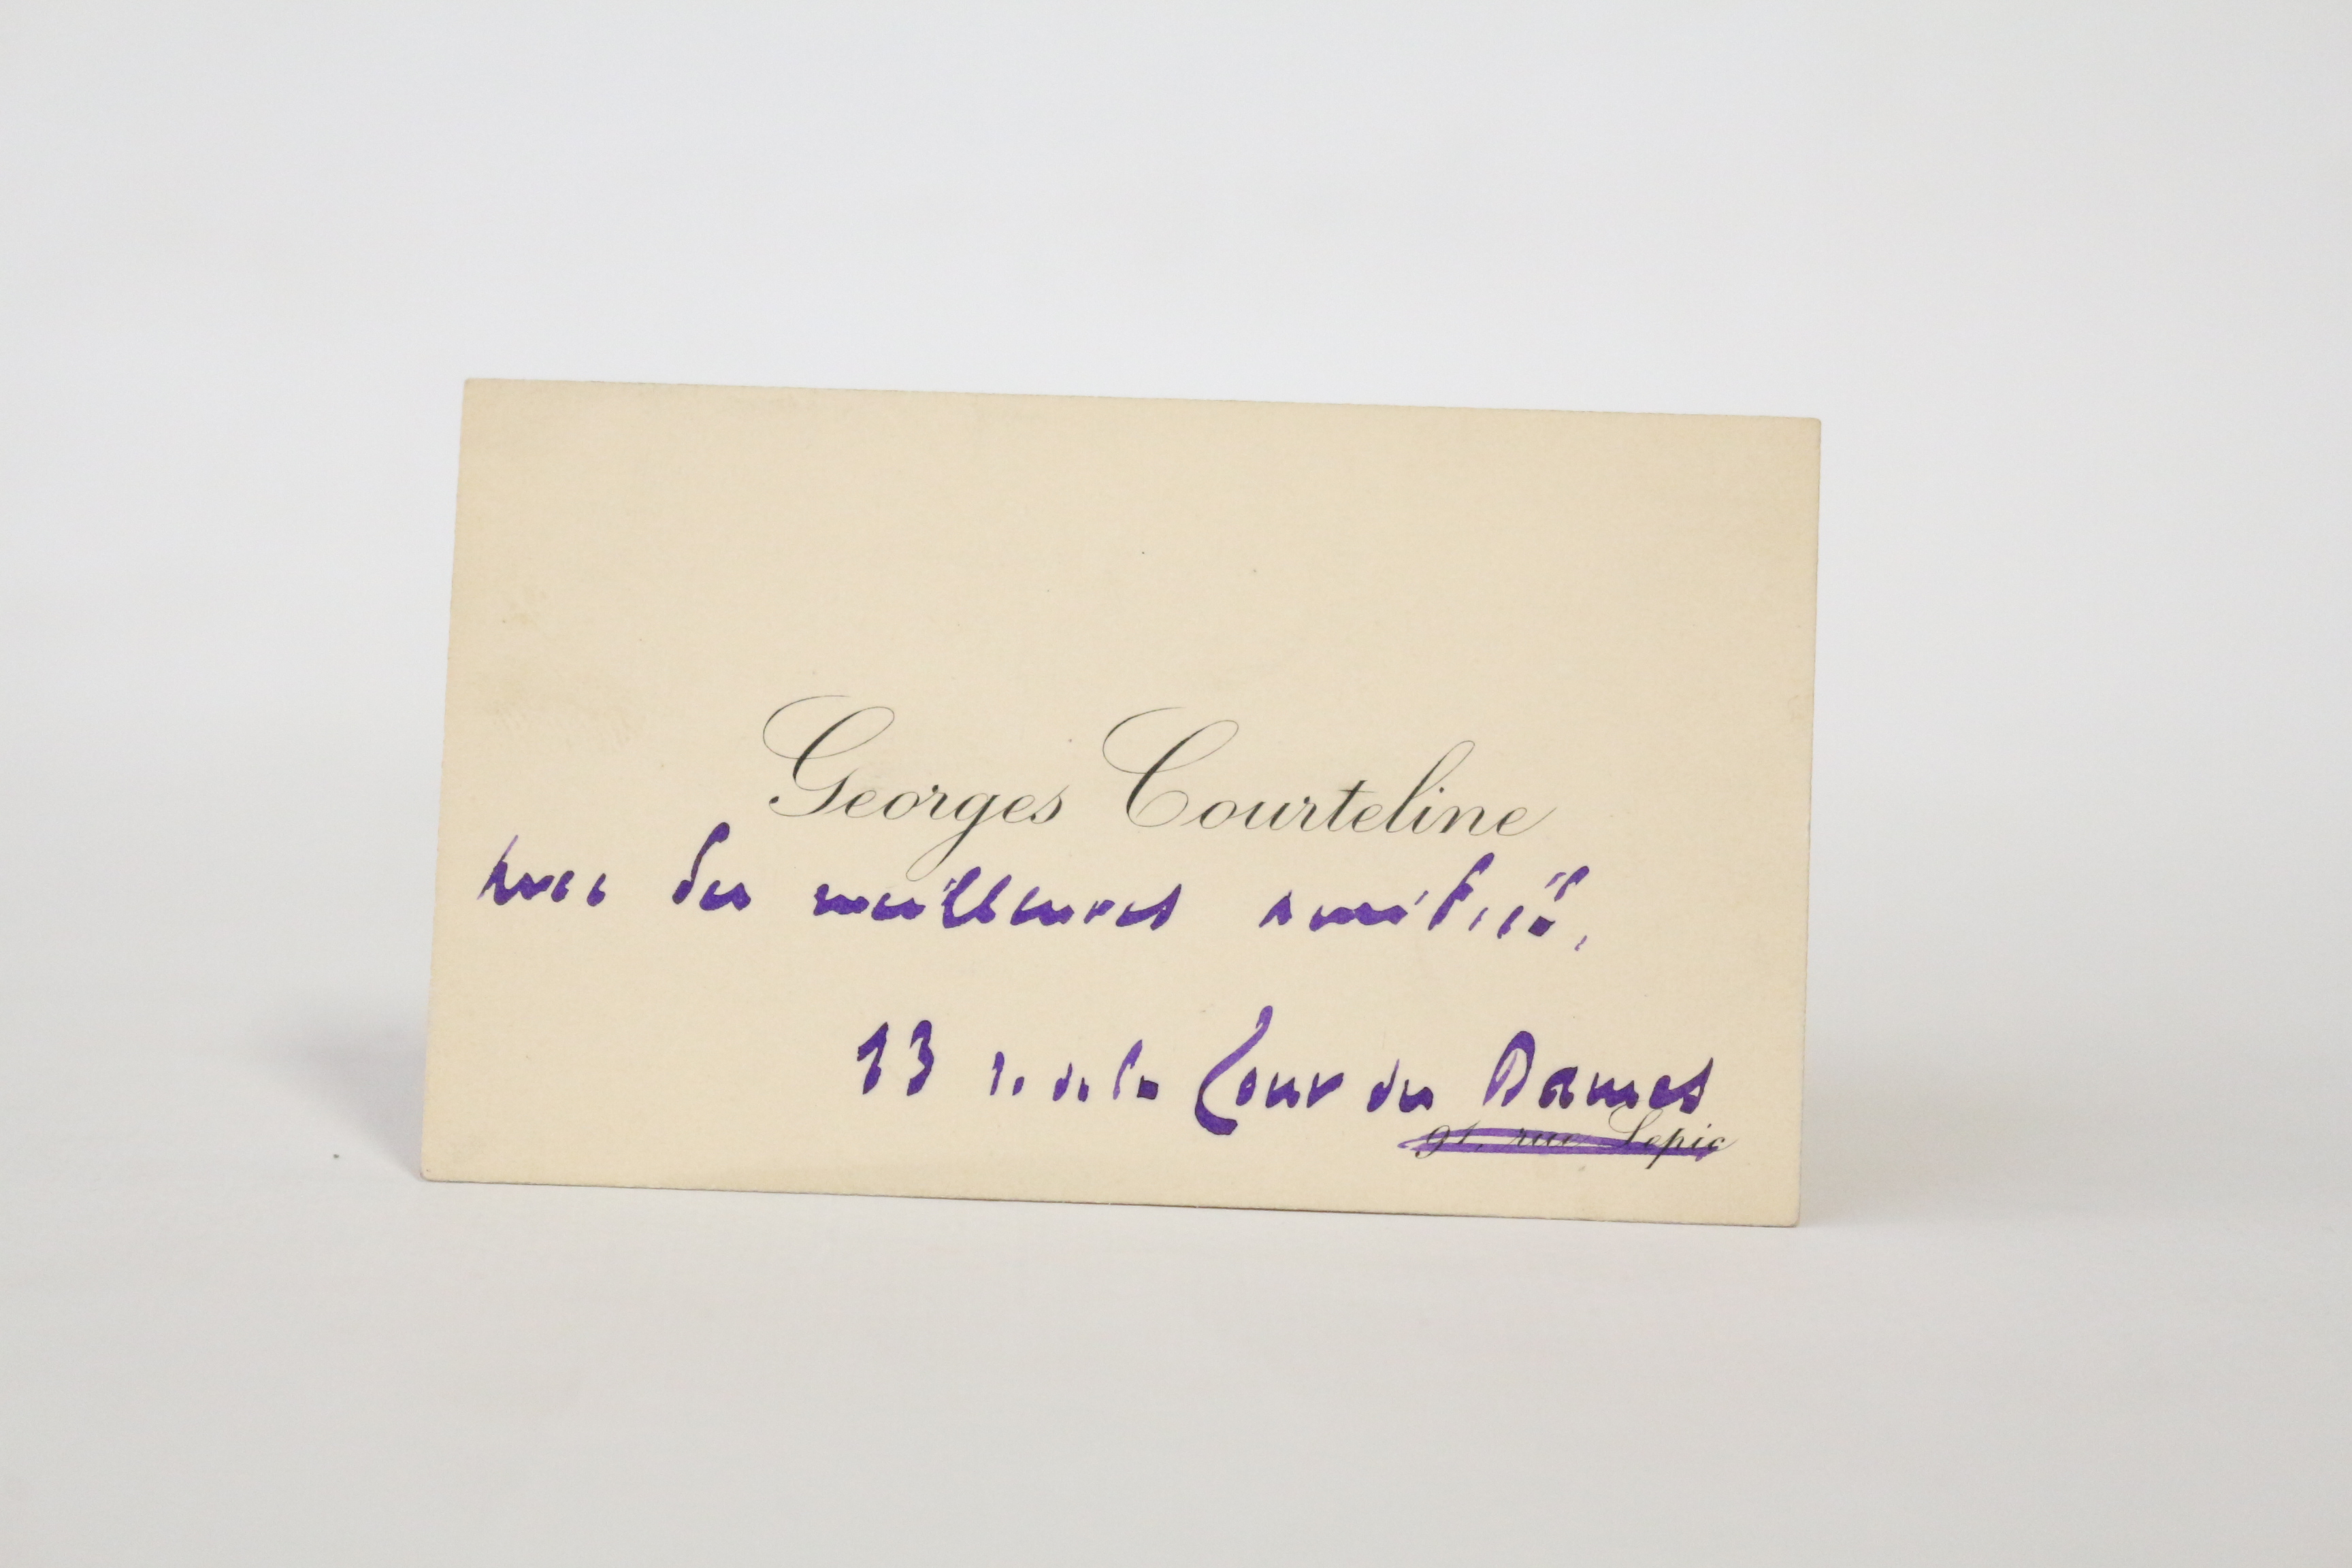 Georges Courteline
avec des meilleures amitiés.
13 r. de la Tour des Dames
91, rue Lepic